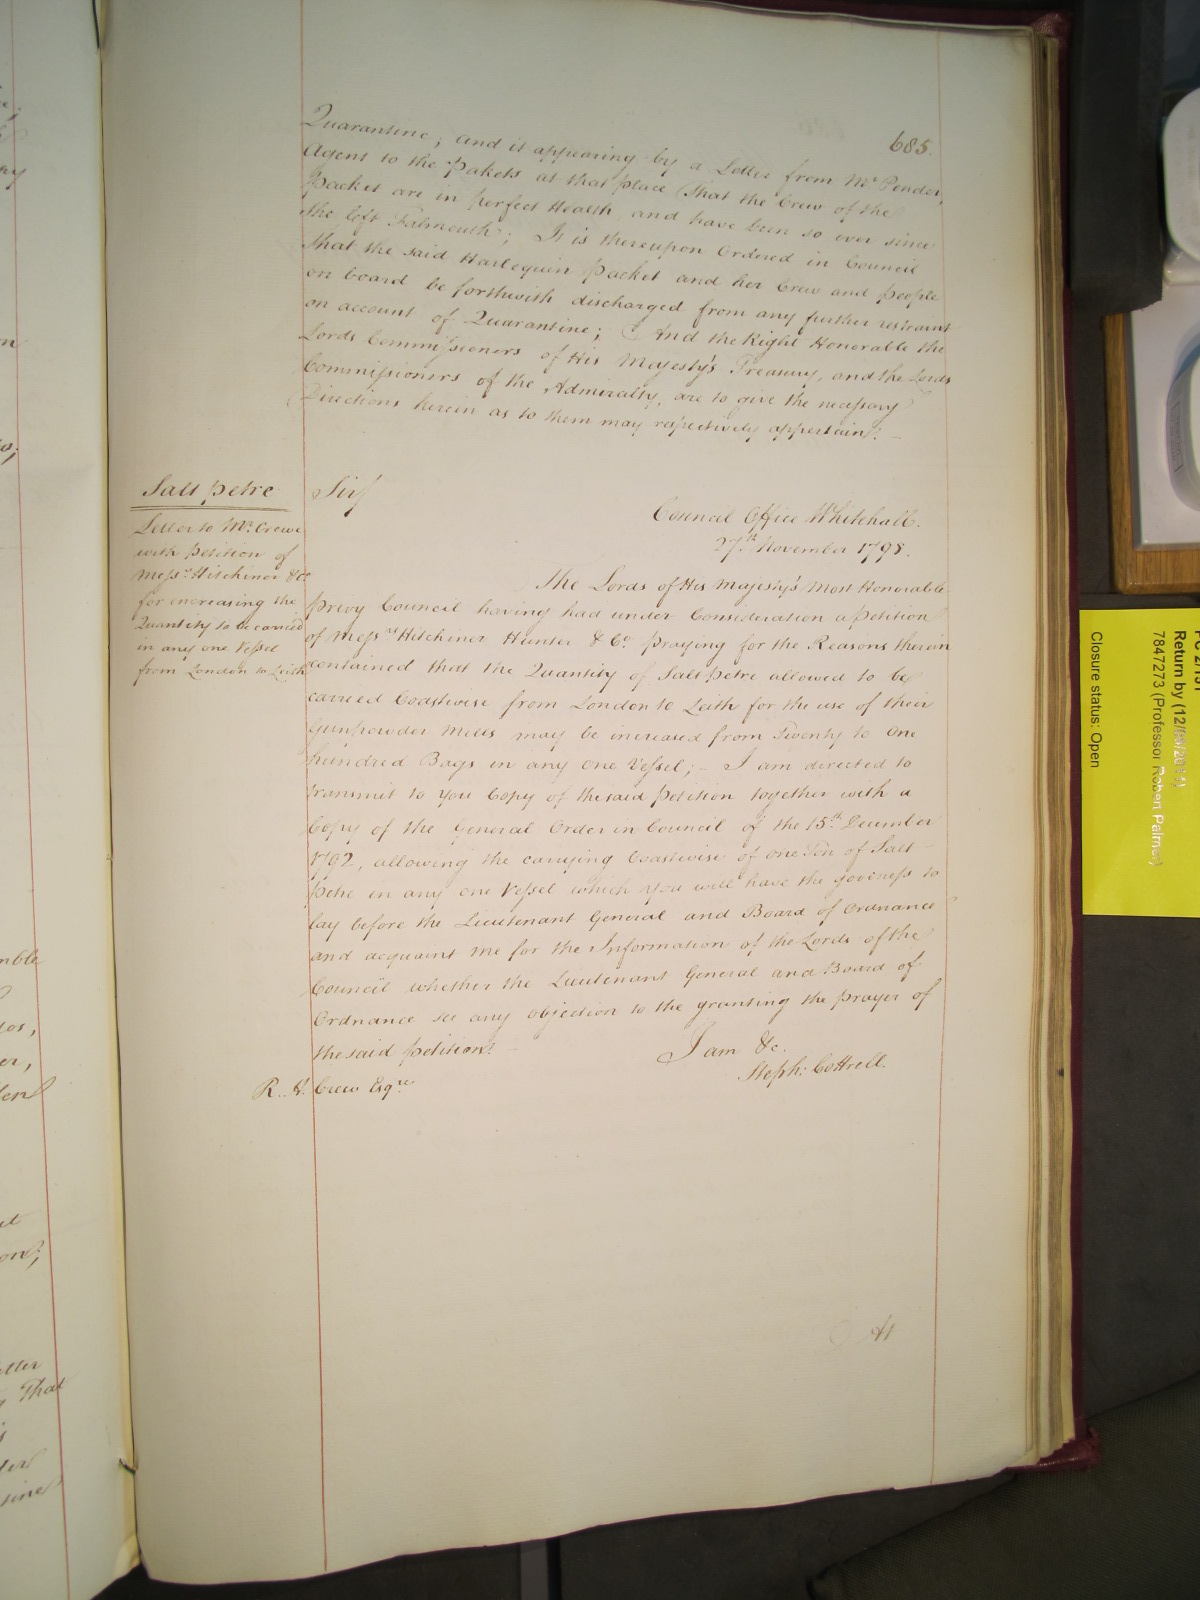 685.
Quarantine; and it appearing by a Letter from Mr. Pender,
Agent to the Pakets at that place That the Crew of the
Packet are in perfect Health and have been so ever since
She left Falmouth; It is thereupon Ordered in Council
that the said Harlequin Packet and her Crew and people
on board be forthwith discharged from any further restraint
on account of Quarantine; And the Right Honorable the
Lords Commissioners of His Majesty's Treasury, and the Lords
Commissioners of the Admiralty, are to give the necessary
Directions herein as to them may respectively appertain. –
Salt petre
Letter to Mr. Crewe
with petition of
Messrs. Hitchiner &c
for encreasing the
Quantity to be carried
in any one Vessel
from London to Leith
Sir/
Council Office Whitehall.
27th. November 1798.
The Lords of His Majesty's Most Honorable
Privy Council having had under Consideration a Petition
of Messrs. Hitchiner Hunter & Co. praying for the Reasons therein
contained that the Quantity of Salt Petre allowed to be
carried Coastwise from London to Leith for the use of their
Gunpowder Mills may be increased from Twenty to One
hundred Bags in any one Vessel; – I am directed to
transmit to you Copy of the said petition together with a
Copy of the General Order in Council of the 15th. December
1792, allowing the carrying Coastwise of one Ton of Salt
petre in any one Vessel which you will have the goodness to
lay before the Lieutenant General and Board of Ordnance
and acquaint me for the Information of the Lords of the
Council whether the Lieutenant General and Board of
Ordnance see any objection to the granting the prayer of
the said petition. –
I am &c.
Steph: Cottrell.
R. H. Crew Esqre
At
Return by (12/
7847273 (Professor Robert Palmer)
Closure status: Open